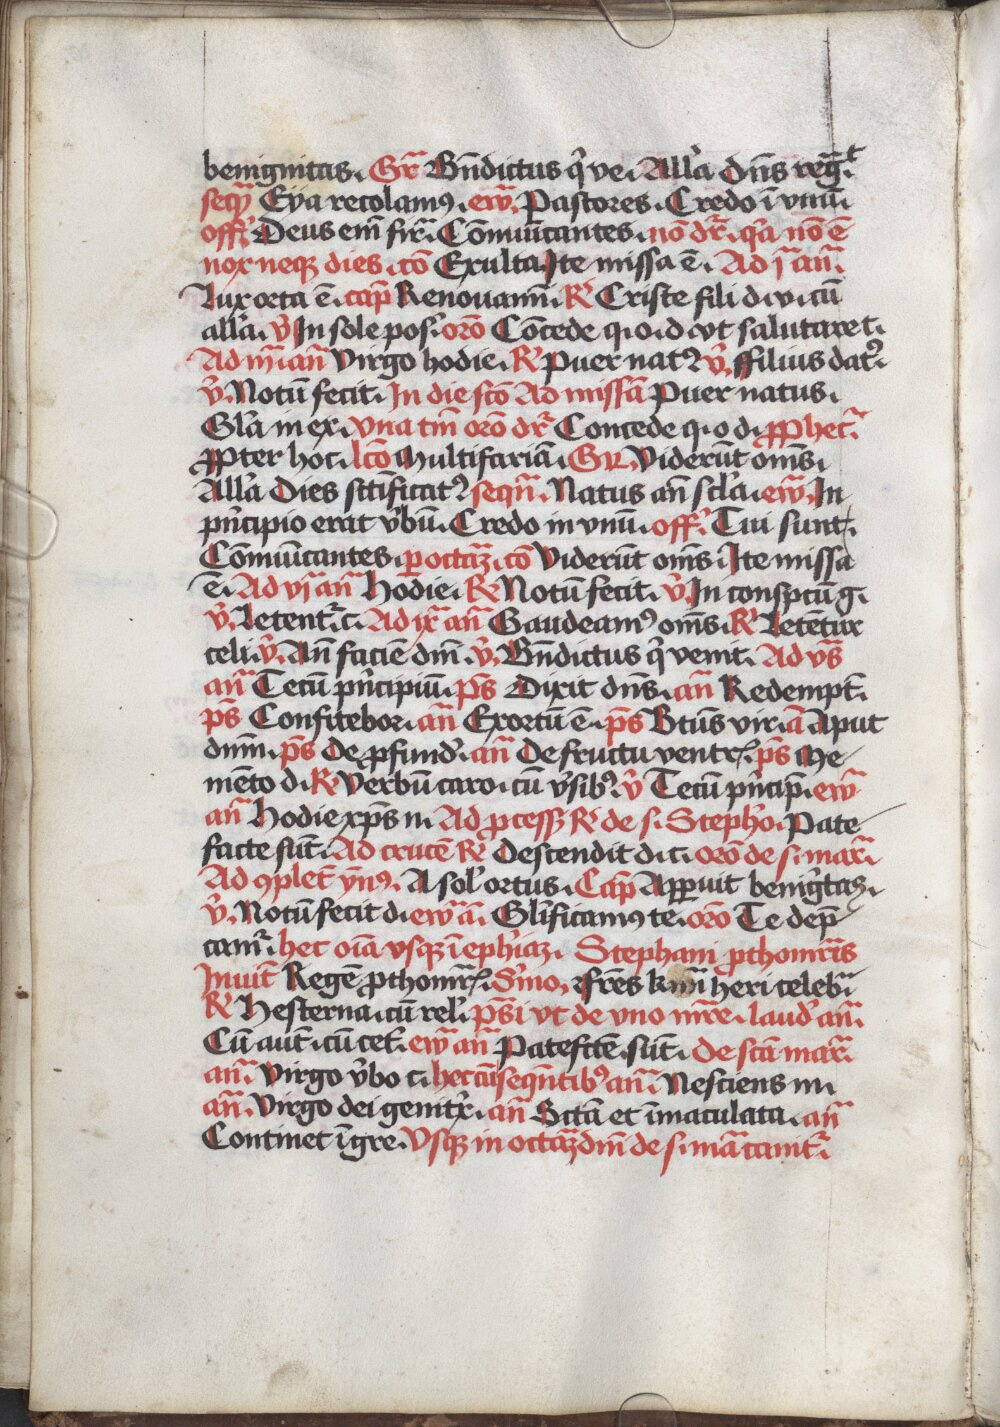 benignitas. Gr̄ Bn̄dictus q̇ ve. All'a Dn̄s regᷓt.
seqᷓ Eya recolamꝰ. ew̄. Pastores. Credo ī vnū.
off'. Deus em̄ fir̄. Cōmuīcantes. nō dr̄. qa nō ē
nox neqꝫ dies. cō Exulta. Ite missa ē. Ad j̄ an̄.
Lux orta ē. cap̄ Renouamī. R̷ Criste fili d. v. cū
all'a. v̓ In sole pos'. orō Cōcede q. o. d. vt salutare t.
Ad iij̄. an̄ Virgo hodie. R̷ Puer natꝰ v̓. ffilius datꝰ.
v̓. Notū fecit. In die scō Ad missā Puer natus.
Gl'a in ex. Vna tm̄ orō dr̄ Concede q. o d. ꝓphec̄.
ꝓpter hoc. lcō Multifariā. Gr̄. Viderūt om̄s.
All'a Dies sc̄tificatꝰ seqn̄. Natus an̄ scl'a. ew̄. In
pn̄cipio erat v̓bū. Credo in vnū. off'. Tui sunt.
Cōmuīcantes. ꝑ octaꝫ. cō Viderūt om̄s. Ite missa
ē. Ad vj̄ an̄ Hodie. R̷ Notū fecit. v̓. In conspcū g.
v̓. Letent'. c. Ad ix̄ an̄ Gaudeamꝰ om̄s. R̷ Letētur
celi. v̓. An̄ faciē dn̄i. v̓. Bn̄dictus q̇ venit. Ad vs̄
an̄ Tecū pn̄cipiū. ps̄ Dixit dn̄s. an̄ Redempt̄.
ps̄ Confitebor. an̄ Exortū ē. ps̄ Btūs vir. ā Aput
dnm̄. ps̄ De ꝓfund'. an̄ De fructu ventr̄. ps̄ Me
mēto d. R̷ Verbū caro. cū v̓sibꝰ. v̓ Tecū pn̄cip̄. ew̄
an̄ Hodie xp̄s n. Ad ꝓcess̄ R̷ de s. Steph'o. Pate
facte sūt. Ad crucē R̷ Descendit d. c. orō de s. mar̄.
Ad ꝯplet̄ yn̄ꝰ. A sol' ortus. Cap̄ Apꝑuit benig̓taꝫ.
v̓. Notū fecit d. ew̄ ā. Gl'ificamꝰ te. orō Te dep̄
cam'. hec oīa vsqꝫ ī eph'iaꝫ. Stephani ꝓthomr̄is
Inuit̄ Regē ꝓthomr̄. S'mo. Frēs k̄mi heri celebᷓ.
R̷ Hesterna. cū rel'. ps̄i vt de vno mr̄e. laud' an̄.
Cū aut̄. cū cet̄. ew̄ an̄ Patefctē. sūt. De scā mar̄.
an̄. Virgo v̓bo c. hec cū seqn̄tibꝰ an̄. Nesciens m.
an̄. Virgo dei genitr̄. an̄ Sctā et īmaculata. an̄
Continet ī gre. Vsqꝫ in octaꝫ dn̄i de s. mā cant'.